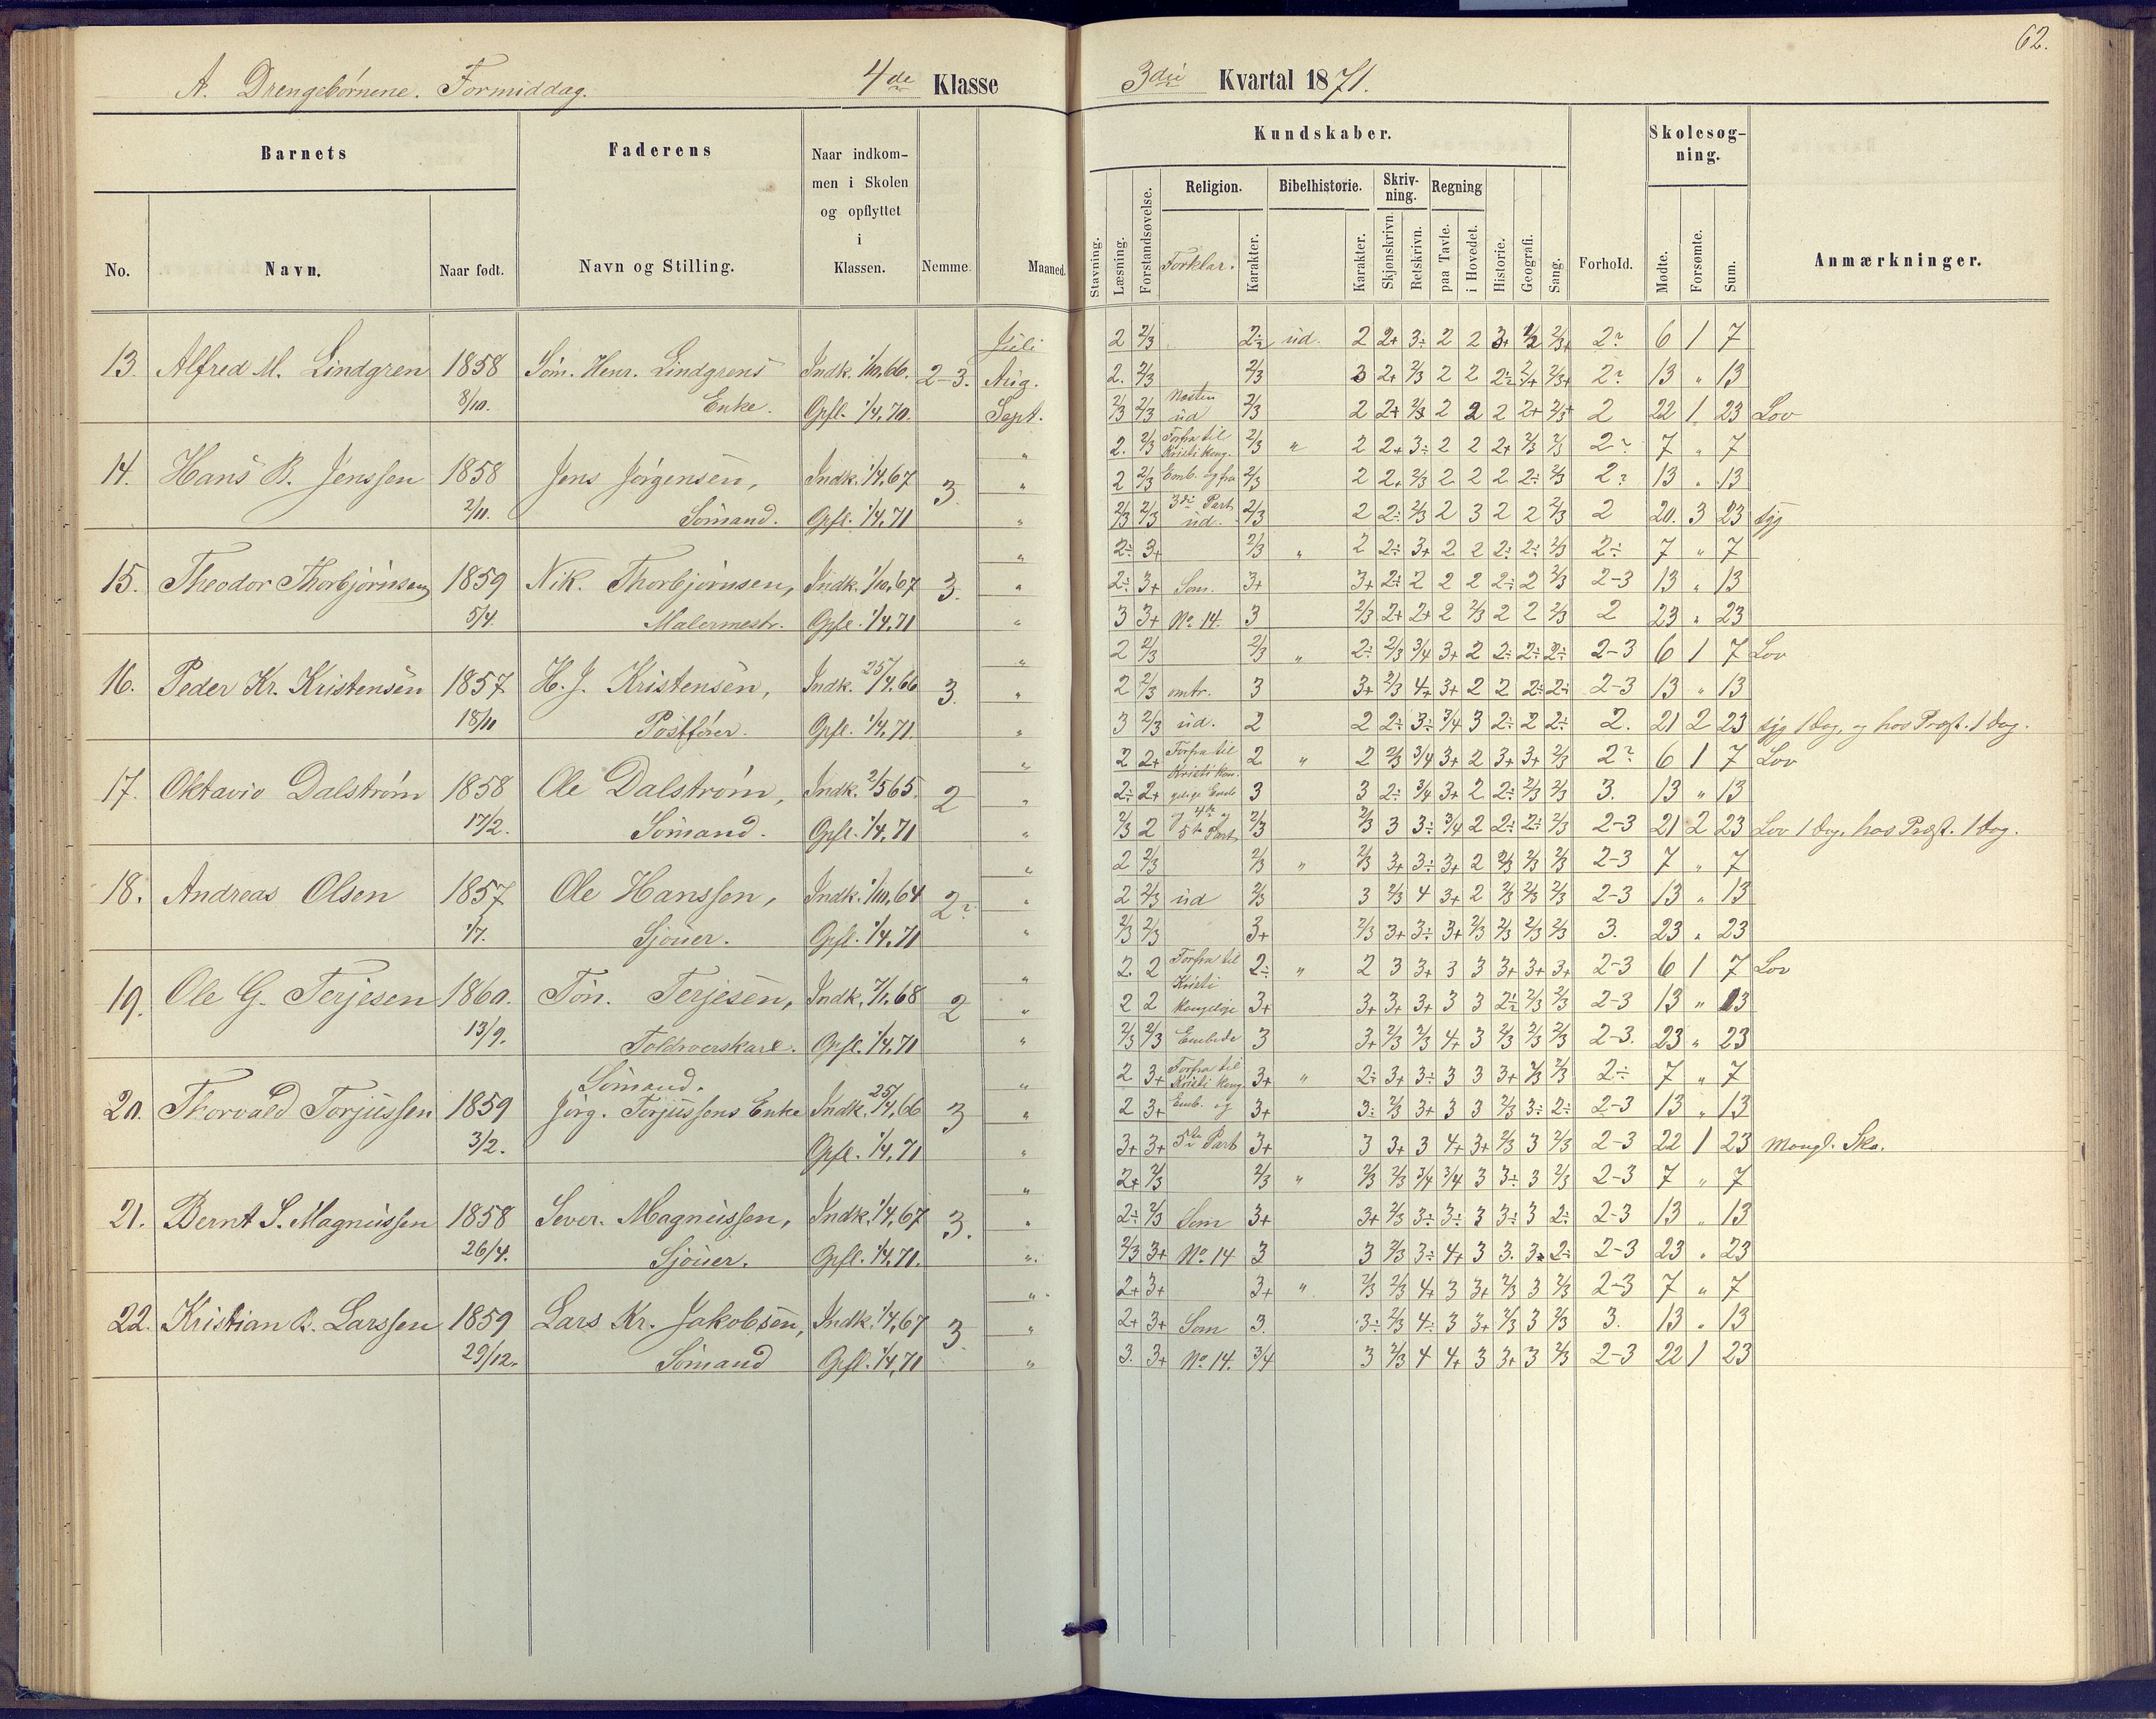 62.
A. Drengebørnene. Formiddag. 4de Klasse
3die Kvartal 1871.
Barnets Faderens Naar indkommen i Skolen og opflyttet i Klassen.
No. Navn. Naar født. Navn og Stilling. Nemme. Maaned.
Kundskaber. Skolesøgning.
Religion. Bibelhistorie. Skrivning. Regning
Stavning. Læsning. Forstandsøvelse. Forklar. Karakter. Karakter. Skjønskrivn. Retskrivn. paa Tavle. i Hovedet. Historie. Geografi. Sang. Forhold. Mødte. Forsømte. Sum. Anmærkninger.
Juli 2 2/3 ud. 2 2+ 3÷ 2 2 2? 6 1 7
13. Alfred M. Lindgren 1858 Søm. Henr. Lindgrens Indk. 1/10,66. 2-3. Aug. 2. 2/3 2/3 3 2+ 2/3 2 2 2? 13 " 13
8/10. Enke. Opfl. 1/4,70. Sept. 2/3 2/3 Næsten ud 2/3 2 2+ 2/3 2 2 2 2+ 2/3+ 2 22 1 23 Lov
" 2. 2/3 Forfra til Kristi Kong. 2/3 " 2 2+ 3÷ 2 2 2+ 2/3 2/3 2? 7 " 7
14. Hans B. Jenssen 1858 Jens Jørgensen, Indk. 1/4,67 3. " 2 2/3 Emb. og fra 2/3 2 2+ 2/3 2 2 2 2÷ 2/3 2? 13 " 13
2/11. Sømand. Opfl. 1/4,71 " 2/3 2/3 3die Part ud. 2/3 2 2÷ 2/3 2 3 2 2 2/3 2 20. 3 23 syg
" 2÷ 3+ 2/3 " 2 2÷ 3+ 2 2 2÷ 2÷ 2/3 2÷ 7 " 7
15. Theodor Thorbjørnsen 1859 Nik. Thorbjørnsen, Indk. 1/10,67 3. " 2÷ 3+ Som 3+ 3+ 2÷ 2 2 2 2÷ 2 2/3 2-3 13 " 13
5/4. Malermestr. Opfl. 1/4,71 " 3 3+ No. 14. 3 2/3 2+ 2+ 2 2/3 2 2 2/3 2 23 " 23
" 2 2/3 2/3 " 2÷ 2/3 3/4 3+ 2 2÷ 2÷ 2÷ 2-3 6 1 7 Lov
16. Peder Kr. Kristensen 1857 H. J. Kristensen, Indk. 25/4,66 3. " 2 2/3 omtr. 3 3+ 2/3 4+ 3+ 2 2 2÷ 2÷ 2-3 13 " 13
18/11 Postfører. Opfl. 1/4,71. " 3 2/3 ud. 2 2 2÷ 3÷ 3/4 3 2÷ 2 2÷ 2. 21 2 23 syg 1 Dag, og hos Præst. 1 Dag.
" 2 2+ Forfra til 2 " 2 2/3 3/4 3+ 2 3+ 3+ 2/3 2? 6 1 7 Lov
17. Oktavio Dalstrøm 1858 Ole Dalstrøm, Indk. 2/5 65. 2 " 2÷ 2+ Kristi kongelige Emb. 3 3 2÷ 3/4 3+ 2 2÷ 2/3 2/3 3. 13 " 13
17/2. Sømand. Opfl. 1/4,71 " 2/3 2 og 4de og 5te Part 2/3 2/3 3 3÷ 3/4 2 2÷ 2÷ 2/3 2-3 21 2 23 Lov 1 Dag, hos Præst. 1 Dag.
" 2 2/3 2/3 " 2/3 3+ 3÷ 3+ 2 2/3 2/3 2/3 2-3 7 " 7
18. Andreas Olsen 1857 Ole Hanssen, Indk. 1/10,64 2? " 2 2/3 ud 2/3 3 2/3 4 3+ 2 2/3 2/3 2/3 2-3 13 " 13
1/7. Sjouer. Opfl. 1/4,71 " 2/3 2/3 3+ 2/3 3+ 3÷ 3+ 2/3 2/3 2/3 2/3 3. 23 " 23
" 2. 2 Forfra til 2÷ " 2 3 3+ 3 3 3+ 3+ 3+ 2-3 6 1 7 Lov
19. Ole G. Terjesen 1860. Tøn. Terjesen, Indk. 7/1,68 2 " 2 2 Kristi kongelige 3+ 3+ 3+ 3+ 3 3 2÷ 2/3 2/3 2-3 13 " 13
13/9. Toldroerskarl. Opfl. 1/4,71 " 2/3 2/3 Embede 3 3+ 2/3 2/3 4+ 3 2/3 2/3 2/3 2-3. 23 " 23
Sømand. " 2 3+ Forfra til Kristi kong 3+ " 2÷ 3+ 3÷ 3 3 3+ 2/3 2/3 2÷ 7 " 7
20. Thorvald Torjussen 1859 Jørg. Torjussens Enke Indk. 25/4,66 3 " 2 3+ Emb. og 3+ 3÷ 2/3 3+ 3 3 2/3 3÷ 2÷ 2-3 13 " 13
3/2. Opfl. 1/4,71 " 3+ 3+ 5te Part 3+ 3 3+ 3 4+ 3+ 2/3 3 2/3 2-3 22 1 23 Mangl. Sko.
" 2+ 2/3 2/3 " 2/3 2/3 3/4 3/4 3 3÷ 3 2/3 2-3 7 " 7
21. Bernt S. Magnussen 1858 Sever. Magnussen, Indk. 1/4,67 3. " 2÷ 2/3 Som 3+ 3+ 2/3 3÷ 3÷ 3 3÷ 3 2÷ 2-3 13 " 13
26/4. Sjouer. Opfl. 1/4,71. " 2/3 3+ No. 14 3 3 2/3 3÷ 4+ 3 3. 3÷ 2÷ 2-3 23 " 23
" 2+ 3+ 3+ " 2/3 2/3 4+ 3 3+ 2/3 3 2/3 2-3 7 " 7
22. Kristian B. Larssen 1859 Lars Kr. Jakobsen, Indk. 1/4,67 3. " 2+ 3+ Som 3. 3÷ 2/3 4÷ 3 3+ 2/3 3 2/3 3. 13 " 13
29/12. Sømand Opfl. 1/4,71 " 3. 3+ No. 14. 3/4 3 2/3 4 4+ 3 3+ 3 2/3 2-3 22 1 23